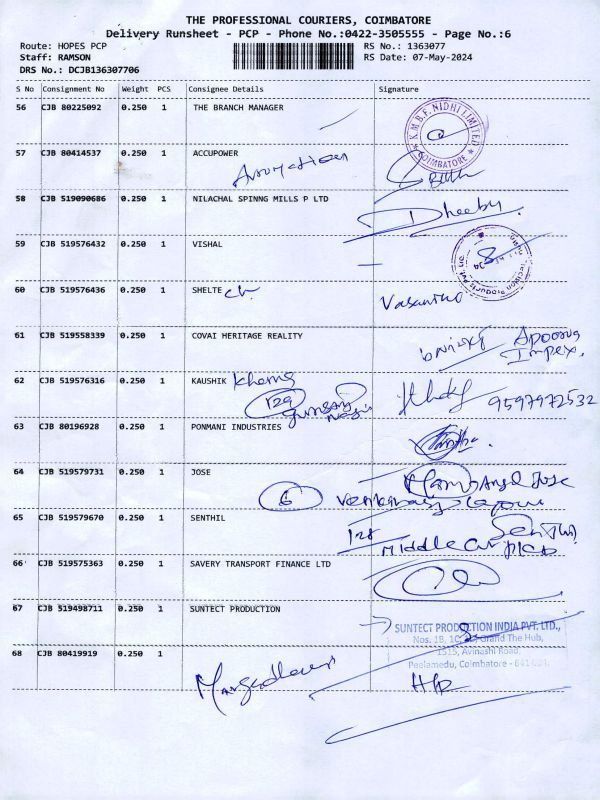 THE PROFESSIONAL COURIERS, COIMBATORE
Delivery Runsheet - PCP - Phone No.:0422-3505555 - Page No.:6
Route: HOPES PCP RS No.: 1363077
Staff: RAMSON RS Date: 07-May-2024
DRS No.: DCJB136307706
S No Consignment No Weight PCS Consignee Details Signature
56 CJB 80225092 0.250 1 THE BRANCH MANAGER
K.M.B.F. NIDHI LIMITED
COIMBATORE
57 CJB 80414537 0.250 1 ACCUPOWER
58 CJB 519090686 0.250 1 NILACHAL SPINNG MILLS P LTD
Dheebu.
59 CJB 519576432 0.250 1 VISHAL
60 CJB 519576436 0.250 1 SHELTE
61 CJB 519558339 0.250 1 COVAI HERITAGE REALITY
Apoorva
Impex.
62 CJB 519576316 0.250 1 KAUSHIK
129
9597972532
63 CJB 80196928 0.250 1 PONMANI INDUSTRIES
64 CJB 519579731 0.250 1 JOSE
Jose
6
65 CJB 519579670 0.250 1 SENTHIL
128 Senthil
Middle
66 CJB 519575363 0.250 1 SAVERY TRANSPORT FINANCE LTD
67 CJB 519498711 0.250 1 SUNTECT PRODUCTION
SUNTECT PRODUCTION INDIA PVT. LTD.,
Nos. 1B, 1C, Grand The Hub,
1515, Avinashi Road,
Peelamedu, Coimbatore - 641 004.
68 CJB 80419919 0.250 1